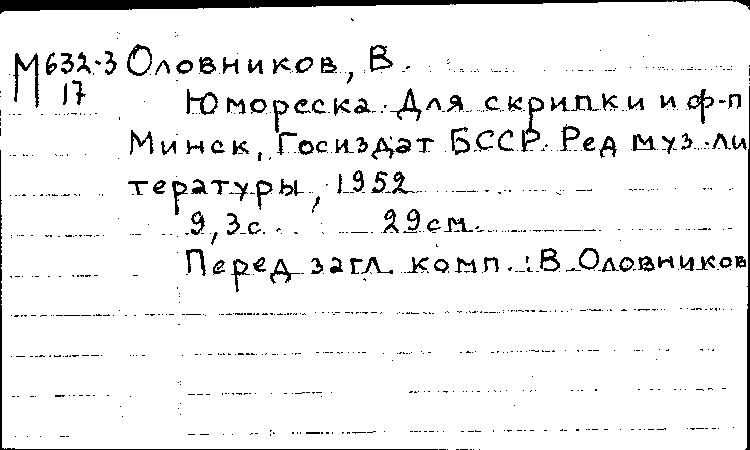 М632-3 Оловников, В.
17
Юмореска. Для скрипки и ф-п
Минск, Госиздат БССР. Ред муз. ли
тературы, 1952
9, 3с. 29см.
Перед загл. комп.: В Оловников